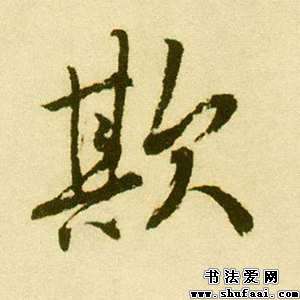 欺
书法爱网
www.shufaai.com